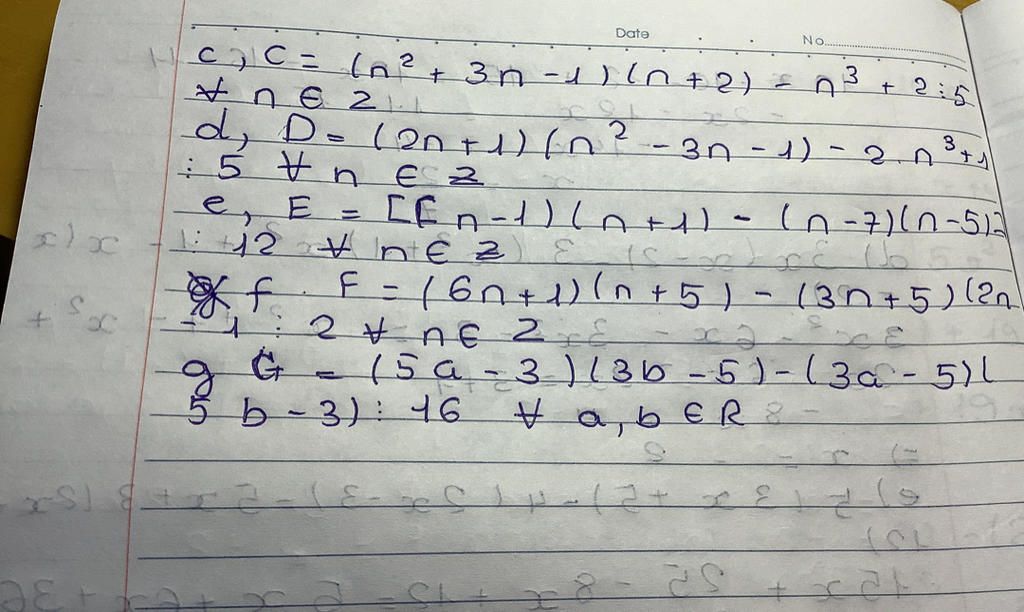 Date No
c, C = (n² + 3n - 1)(n + 2) = n³ + 2 ⋮ 5
∀ n ∈ Z
d, D = (2n + 1)(n² - 3n - 1) - 2. n³ + 1
⋮ 5 ∀ n ∈ Z
e, E = [[n - 1)(n + 1) - (n - 7)(n - 5)]
⋮ 12 ∀ n ∈ Z
f. F = (6n + 1)(n + 5) - (3n + 5)(2n
- 1 ⋮ 2 ∀ n ∈ Z
g G = (5a - 3)(3b - 5) - (3a - 5)(
5 b - 3) ⋮ 16 ∀ a, b ∈ R